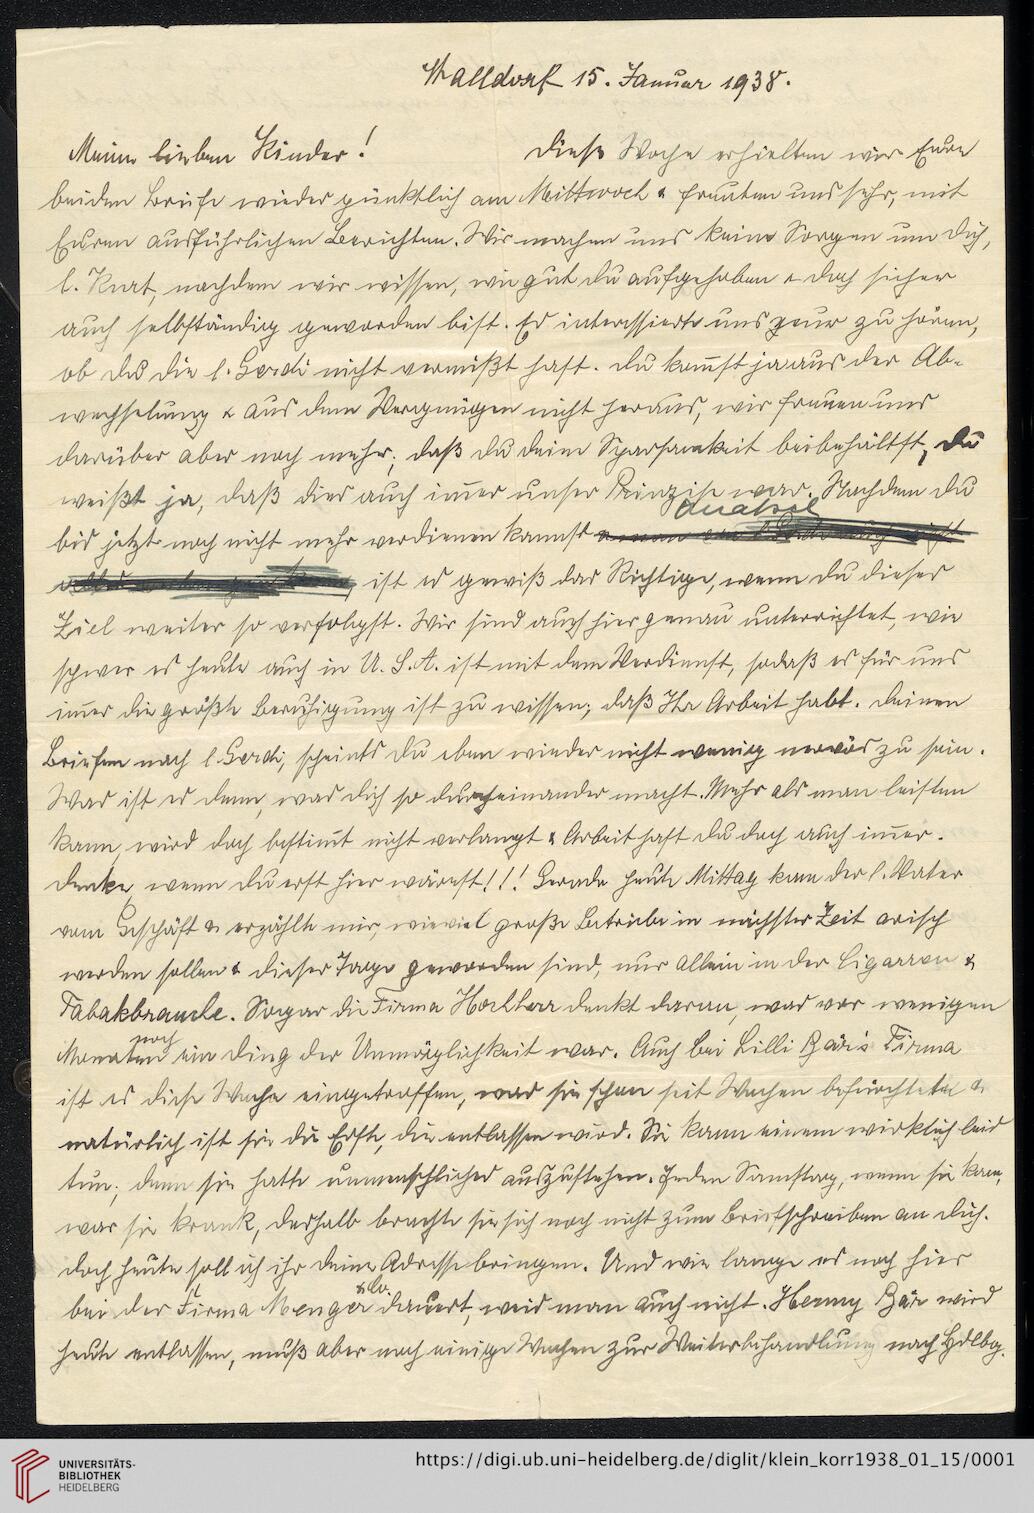 Walldorf 15. Januar 1938.
Meine lieben Kinder! Diese Woche erhielten wir Eure
beiden Briefe wieder pünktlich am Mittwoch & freuten uns sehr, mit
Euren ausführlichen Berichten. Wir machen uns keine Sorgen um Dich,
l. Kurt, nachdem wir wissen, wie gut Du aufgehoben & doch sicher
auch selbständig geworden bist. Es interessierte uns zu hören,
ob Du die l. Gerdi nicht vermißt hast. Du kommst ja aus der Ab-
wechselung & aus dem Vergnügen nicht heraus, wir freuen uns
darüber aber noch mehr, daß Du Deine Sparsamkeit beibehältst, Du
weißt ja, daß dies auch immer unser Prinzip war. Nachdem Du
bis jetzt noch nicht mehr verdienen kannst
ist es gewiß das Richtige, wenn Du dieses
Ziel weiter so verfolgst. Wir sind auch hier genau unterrichtet, wie
schwer es heute auch in U.S.A. ist mit dem Verdienst, sodaß es für uns
immer die größte Beruhigung ist zu wissen, daß Ihr Arbeit habt. Deinen
Briefen nach l. Gerdi, scheints Du eben wieder nicht wenig nervös zu sein.
Was ist es denn, was Dich so durcheinander macht. Mehr als man leisten
kann, wird doch bestimmt nicht verlangt & Arbeit hast Du doch auch immer.
Denke, wenn Du erst hier wärest!!! Gerade heute Mittag kam der l. Vater
vom Geschäft & erzählte mir, wieviel große Betriebe in nächster Zeit arisch
werden sollen & dieser Tage geworden sind, nur allein in der Cigarren &
Tabakbranche. Sogar die Firma Hochherr denkt daran, was vor wenigen
Monaten noch ein Ding der Unmöglichkeit war. Auch bei Lilli Bär's Firma
ist es diese Woche eingetroffen, was sie schon seit Wochen befürchtete &
natürlich ist sie die Erste, die entlassen wird. Sie kann einem wirklich leid
tun, denn sie hatte unmenschliches auszustehen. Jeden Samstag, wenn sie kam,
war sie krank, deshalb brachte sie sich noch nicht zum Briefschreiben an Dich.
Doch heute soll ich ihr Deine Adresse bringen. Und wie lange es noch hier
bei der Firma Menger & Co. dauert, weis man auch nicht. Henny Bär wird
heute entlassen, muß aber noch einige Wochen zur Weiterbehandlung nach Hdlbg.
UNIVERSITÄTS-
BIBLIOTHEK
HEIDELBERG
https://digi.ub.uni-heidelberg.de/diglit/klein_korr1938_01_15/0001